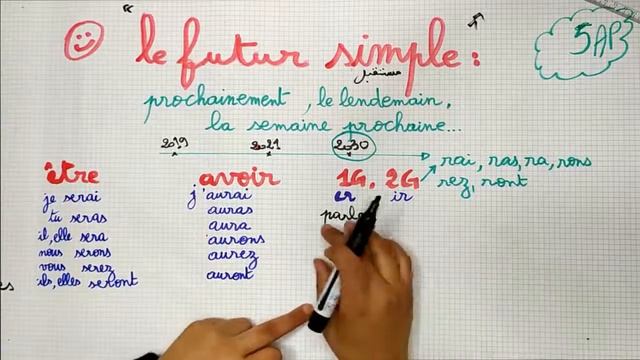 "le futur simple :"
مستقبل
5AP
prochainement, le lendemain,
la semaine prochaine...
2019 2021 2030
rai, ras, ra, rons
rez, ront
être
je serai
tu seras
il, elle sera
nous serons
vous serez
ils, elles seront
avoir
j'aurai
auras
aura
aurons
aurez
auront
1G, 2G
er ir